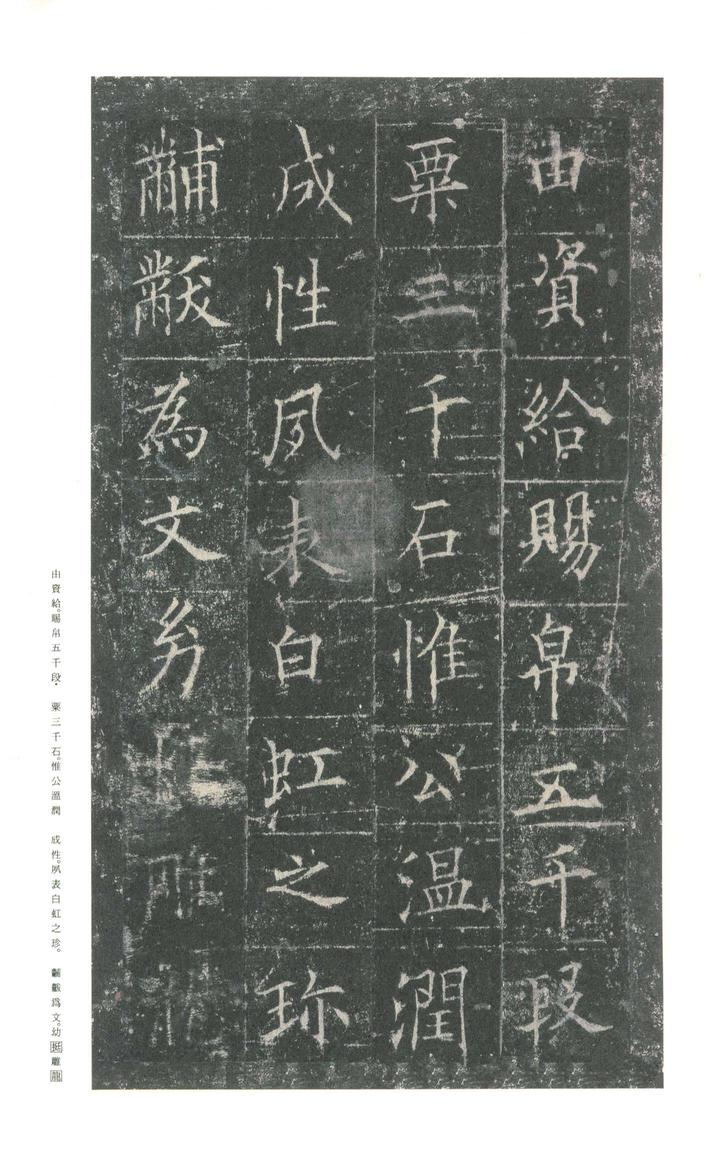 由資給賜帛五千段
粟三千石惟公溫潤
成性夙表白虹之珎
黼黻為文幼
由資給。賜帛五千段．　粟三千石。惟公溫潤　成性。夙表白虹之珍。　黼黻爲文。幼挺雕龍